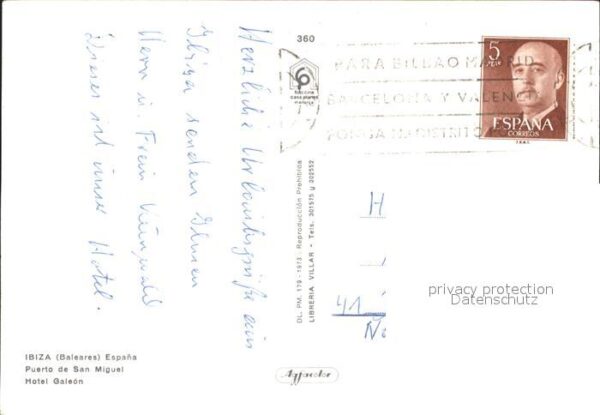 360
5
PTAS
ESPAÑA
CORREOS
PARA BILBAO MADRID
BARCELONA Y VALENCIA
PONGA Nº DISTRITO
Herzliche Urlaubsgrüße aus
Ibiza senden Ihnen
Herr u. Frau
Dieses ist unser Hotel.
DL. PM. 179 - 1973. Reproducción Prohibida
LIBRERIA VILLAR - Tels. 301575 y 302552
H
41
privacy protection
Datenschutz
IBIZA (Baleares) España
Puerto de San Miguel
Hotel Galeón
Agfacolor